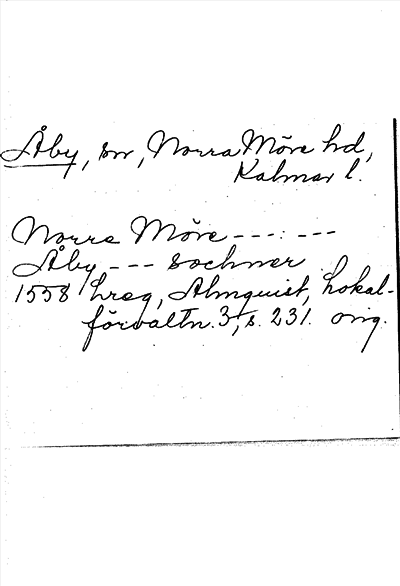 Åby, sn, Norra Möre hd,
Kalmar l.
Norra Möre ---:---
Åby --- sochner
1558 hreg, Almquist, Lokal-
förvaltn. 3, s. 231. orig.